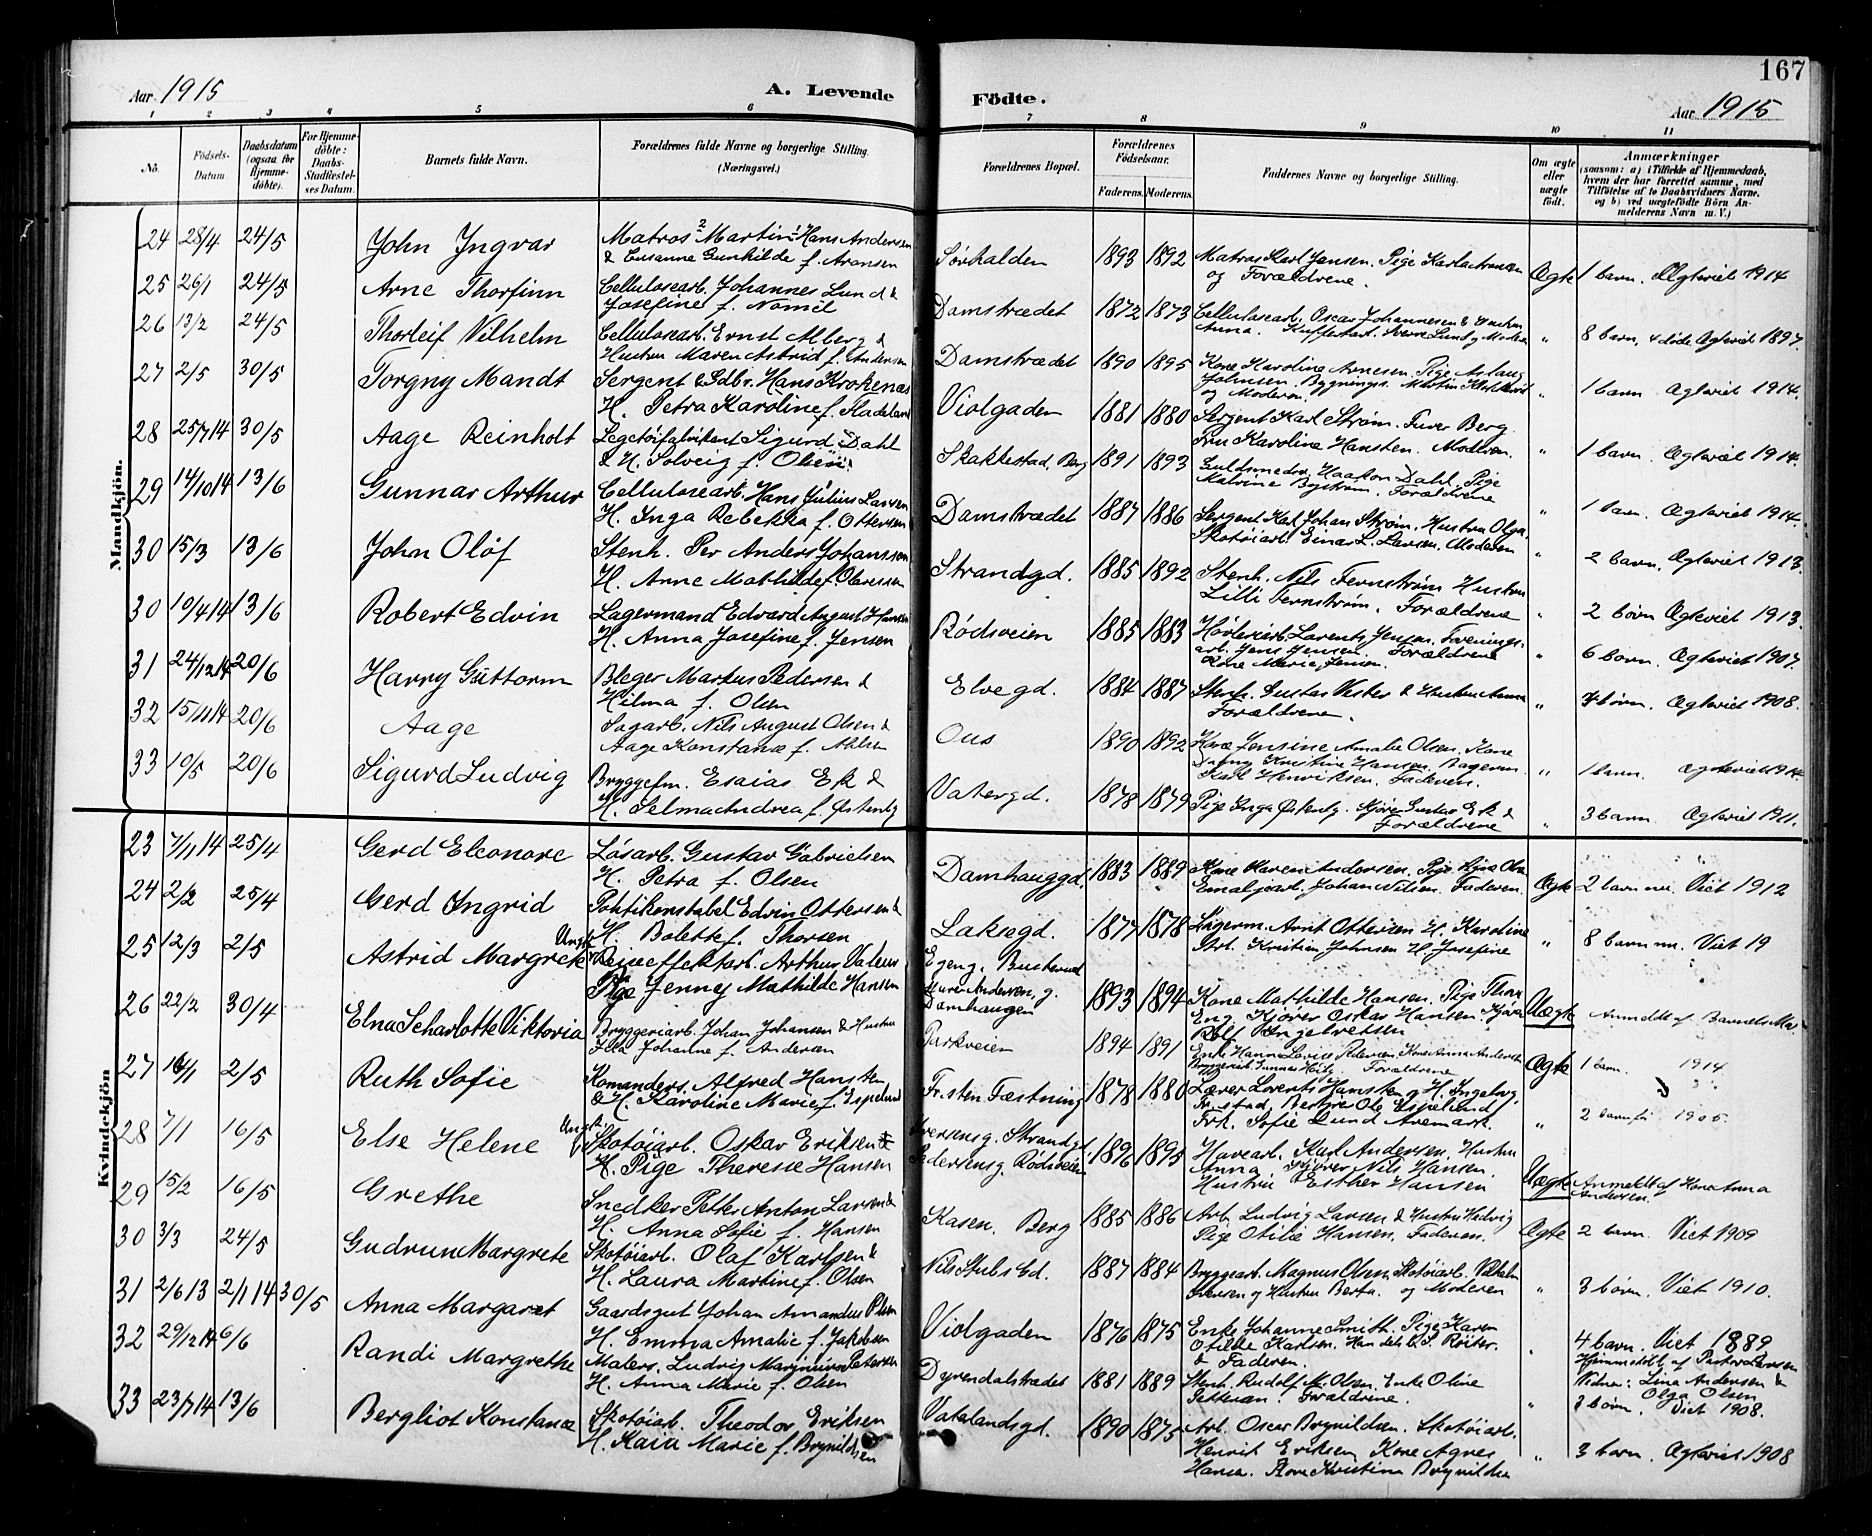 167
Aar 1915
A. Levende Födte.
Aar 1915
1 2 3 4 5 6 7 8 9 10 11
No.
Födsels-Datum.
Daabsdatum (ogsaa for Hjemme-döbte).
For Hjemme-döbte: Daabs-Stadfæstel-ses Datum.
Barnets fulde Navn.
Forældrenes fulde Navne og borgerlige Stilling. (Næringsvei.)
Forældrenes Bopæl.
Forældrenes Födselsaar.
Faderens. Moderens.
Faddernes Navne og borgerlige Stilling.
Om ægte eller uægte födt.
Anmærkninger
(saasom: a) i Tilfælde af Hjemmedaab,
hvem der har forrettet samme, med
Tilföielse af to Daabsvidners Navne,
og b) ved uægtefödte Börn An-
melderens Navn m. V.)
Mandkjön.
24 28/4 24/5 John Ingvar Matros Martin Hans Andersen
& Susanne Gunhilde f. Aronsen Sørhalden 1893 1892 Matros Karl Jensen. Pige Karla Aronsen
og Forældrene. Ægte 1 barn. Ægteviet 1914
25 26/1 24/5 Arne Thorfinn Cellulosearb. Johannes Lund &
Josefine f. Damstrædet 1872 1873 Cellulosearb. Oscar Johannesen & Hustru
Anna. Sverre Lund og Moder " 8 barn, 4 døde Ægteviet 1897.
26 13/2 24/5 Thorleif Vilhelm Cellulosearb. Ernst Alberg &
Hustru Maren Astrid f. Andersen Damstrædet 1890 1895 Kone Karoline Arnesen. Pige Aslaug
Johnsen. Bygnings. Martin
og Moderen " 1 barn Ægteviet 1914.
27 2/5 30/5 Torgny Mandt Sergent & Gdbr. Hans Krokenas
H. Petra Karoline f. Fladeland Violgaden 1881 1880 Sergent Karl Strøm. Furer Berg.
Fru Karoline Hansten. Moderen. " 1 barn Ægteviet 1914.
28 25/7 14 30/5 Aage Reinholt Legetøifabrikent Sigurd Dahl
& H. Solveig f. Olsen Skakkestad, Berg 1891 1893 Guldsmedsv. Haakon Dahl, Pige
Malvine Bystrøm. Forældrene " 1 barn. Ægteviet 1914.
29 14/10 14 13/6 Gunnar Arthur Cellulosearb. Hans Julius Larsen
H. Inga Rebekka f. Ottersen Damstrædet 1887 1886 Sergent Karl Johan Strøm. Hustru Olga.
Skotøiarb. Einar L. Larsen. Moderen " 2 barn. Ægteviet 1913.
30 15/3 13/6 John Olôf Stenh. Per Anders Johansson
H. Anne Mathilde f. Olaussen Strandgd. 1885 1892 Stenh. Nils Fernstrøm Hustru
Lilli Fernstrøm. Forældrene " 2 børn Ægteviet 1913.
30 10/4 14 13/6 Robert Edvin Lagermand Edvard August Hansen
H. Anna Josefine f. Jensen Rødsveien 1885 1883 Høvleriarb. Larents Jensen. Forenings-
arb. Jens Jensen. Forældrene
Kone Marie Jensen. " 6 barn. Ægteviet 1907.
31 24/12 14 20/6 Harry Guttorm Bleger Markus Pedersen &
Hilma f. Olsen Elvegd. 1884 1887 Stenh. Gustav Vester & Hustru Anna
Forældrene. " børn. Ægteviet 1908.
32 15/11 14 20/6 Aage Sagarb. Nils August Olsen &
Aage Konstanse f. Ous 1890 1892 Kone Jensine Amalie Olsen, Kone
Dagny Kristine Hansen, Bagersv.
Karl Henriksen, Faderen. " 1 barn. Ægteviet 1914.
33 10/5 20/6 Sigurd Ludvig Bryggefm. Esaias Ek &
H. Selma Andrea f. Østenlig Vatergd. 1878 1879 Pige Inga Østenlig. Kjører Gustav Ek &
Forældrene " 3 barn. Ægteviet 1911.
Kvindekjön
23 7/11 14 25/4 Gerd Eleonore Løsarb. Gustav Gabrielsen
H. Petra f. Olsen Damhauggd. 1883 1889 Kone Maren Andersen. Pige
Emaljearb. Johan Nilsen. Faderen. Ægte 2 barn nu. Viet 1912
24 2/2 25/4 Gerd Ingrid Politikonstabel Edvin Ottersen &
H. Bolette f. Thorsen Laksegd. 1877 1878 Lagerm. Arnt Ottersen H. Karoline
Arb. Kristian Johnsen H. Josefine " 8 barn nu. Viet 19
25 12/3 2/5 Astrid Margrete Ungk. Reiseeffektarb. Arthur
Pige Jenny Mathilde Hansen Egeng. Busterud
Murer Andersen, g.
Damhaugen 1893 1894 Kone Mathilde Hansen. Pige Thora
Eng. Kjører Oskar Hansen. Kjører
Rolf Engelvetsen Uægte Anmeldt af Barnets Mor.
26 22/2 30/4 Elna Scharlotte Viktoria Bryggeriarb. Johan Johansen & Hustru
Johanne f. Andersen Parkveien 1894 1891 Enke Hanna Lovise Pedersen, Kone Anna Andersen
Bryggeriarb. Gunnar Forældrene Ægte 1 barn. 1914
27 16/1 2/5 Ruth Sofie Komanders. Alfred Hansten
& H. Karoline Marie f. Espelund Fr.sten Fæstning 1878 1880 Lærer Lorents Hansten og H. Ingeborg,
Fr.stad. Bestyre Ole Espelund
Frk. Sofie Lund Aremark. " 2 barn 1905.
28 7/1 16/5 Else Helene Ungk. Skotøiarb. Oskar Eriksen &
H. Pige Therese Hansen Iversensg. Strandgd.
Pedersensg. Rødsveien 1896 1895 Havearb. Karl Andersen, Hustru
Anna. Kjører Nils Hansen.
Hustru Esther Hansen Uægte Anmeldt af Kone Anna
Andersen.
29 15/2 16/5 Grethe Snedker Petter Anton Larsen &
H. Anna Sofie f. Hansen Kasen. Berg 1885 1886 Arb. Ludvig Larsen & Hustru Hedvig
Pige Otilie Hansen. Faderen. Ægte 2 barn. Viet 1909
30 3/3 24/5 Gudrun Margrete Skotøiarb. Olaf Karlsen &
H. Laura Martine f. Olsen Nils Stubs Gd. 1887 1884 Bryggearb. Magnus Olsen, Skotøiarb. Vilhelm
og Hustru Berta. og Moderen " 3 børn. Viet 1910.
31 2/6 13 2/1 14 30/5 Anna Margaret Gaardsgut Johan Amandus Olsen
H. Emma Amalie f. Jakobsen Violgaden 1876 1875 Enke Johanne Smith. Pige Karen
Otilde Karlsen. Handels b. S. Röiter.
& Faderen. " 4 barn. Viet 1889
Hjemmedöbt af Pastor Larsen
Vidner: Lina Andersen &
Olga Olsen
32 29/12 14 6/6 Randi Margrethe Malers. Ludvig Marinius Petersen
H. Anna Marie f. Olsen Dyrendalstrædet 1881 1889 Stenh. Rudolf M. Olsen. Enke Oline
Pettersen. Forældrene. " 3 børn. Viet 1908.
33 23/7 14 13/6 Bergliot Konstanse Skotøiarb. Theodor Eriksen
H. Kaia Marie f. Brynildsen Vaterlandsgd. 1890 1875 Arb. Oscar Brynildsen. Skotøiarb.
Henrik Eriksen, Kone Agnes
Hansen. Kone Kristine Brynildsen " 3 barn. Ægteviet 1908